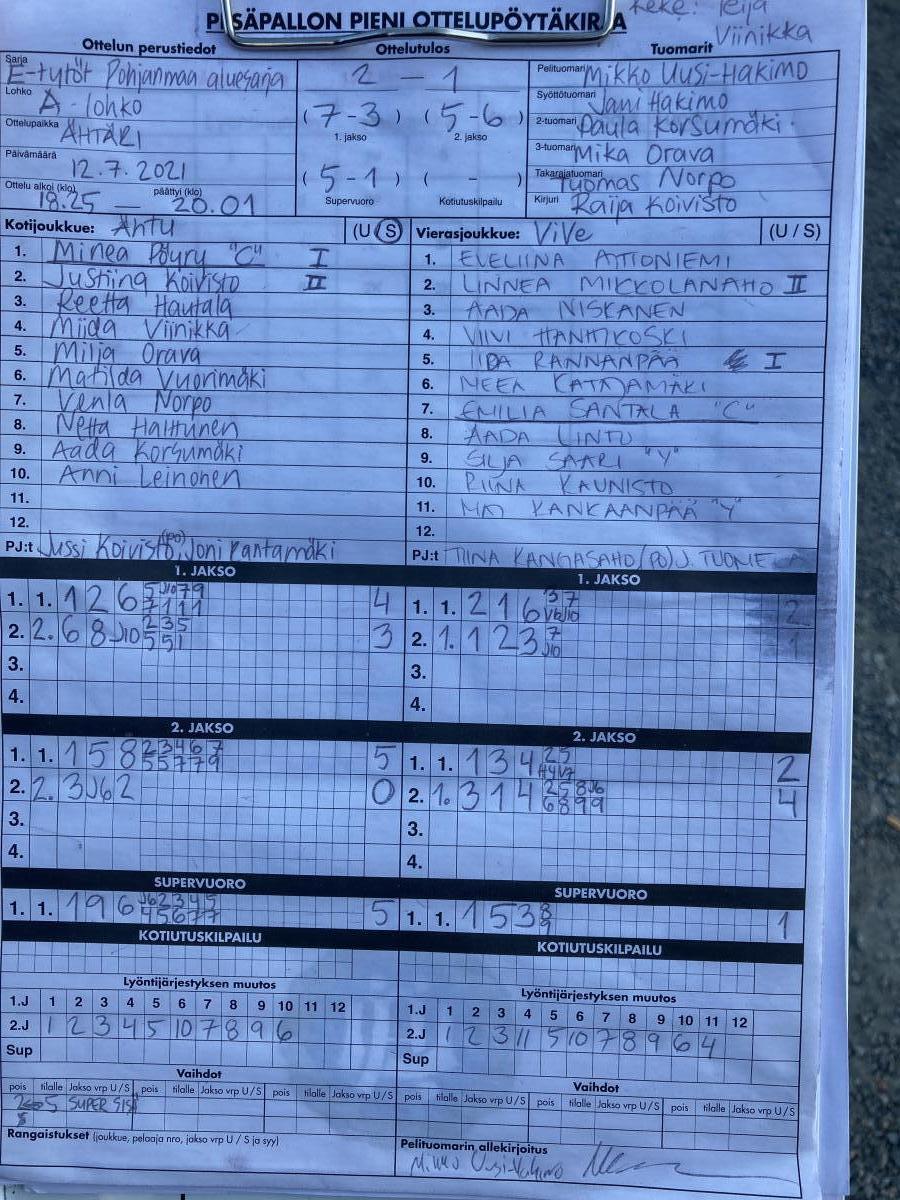 PESÄPALLON PIENI OTTELUPÖYTÄKIRJA
Viinikka
Ottelun perustiedot
Ottelutulos
Tuomarit
Sarja E-tytöt Pohjanmaa aluesarja
Lohko A-lohko
Ottelupaikka ÄHTÄRI
Päivämäärä 12.7.2021
Ottelu alkoi (klo) 18.25 — päättyi (klo) 20.01
2 - 1
(7-3) (5-6)
1. jakso 2. jakso
(5-1) ( - )
Supervuoro Kotiutuskilpailu
Pelituomari Mikko Uusi-Hakimo
Syöttötuomari Jani Hakimo
2-tuomari Paula Korsumäki
3-tuomari Mika Orava
Takarajatuomari Tuomas Norpo
Kirjuri Raija Koivisto
Kotijoukkue: ÄhTU (U/S)
1. Minea Pöyry "C" I
2. Justiina Koivisto II
3. Reetta Hautala
4. Miida Viinikka
5. Milja Orava
6. Matilda Vuorimäki
7. Venla Norpo
8. Netta Haltunen
9. Aada Korsumäki
10. Anni Leinonen
11.
12.
PJ:t Jussi Koivisto (PO), Joni Rantamäki
Vierasjoukkue: ViVe (U / S)
1. EVELIINA ATTONIEMI
2. LINNEA MIKKOLANAHO II
3. AADA NISKANEN
4. VIIVI HANHIKOSKI
5. IIDA RANNANPÄÄ I
6. NEEA KATAJAMÄKI
7. EMILIA SANTALA "C"
8. AADA LINTU
9. SILJA SAARI "Y"
10. RIINA KAUNISTO
11. KANKAANPÄÄ "Y"
12.
PJ:t TIINA KANGASAHO (PO) J.
1. JAKSO
1. 1. 126 4
2. 2. 68J10 235 551 3
3.
4.
1. JAKSO
1. 1. 216 2
2. 1. 123 7 J10 1
3.
4.
2. JAKSO
1. 1. 158 23467 55779 5
2. 2. 3J62 0
3.
4.
2. JAKSO
1. 1. 134 25 2
2. 1. 314 258J6 6899 4
3.
4.
SUPERVUORO
1. 1. 196 J62345 45677 5
SUPERVUORO
1. 1. 153 1
KOTIUTUSKILPAILU
KOTIUTUSKILPAILU
Lyöntijärjestyksen muutos
1.J 1 2 3 4 5 6 7 8 9 10 11 12
2.J 1 2 3 4 5 10 7 8 9 6
Sup
Lyöntijärjestyksen muutos
1.J 1 2 3 4 5 6 7 8 9 10 11 12
2.J 1 2 3 11 5 10 7 8 9 6 4
Sup
Vaihdot
pois tilalle Jakso vrp U/S pois tilalle Jakso vrp U/S pois tilalle Jakso vrp U/S
SUPER
Vaihdot
pois tilalle Jakso vrp U/S pois tilalle Jakso vrp U/S pois tilalle Jakso vrp U/S
Rangaistukset (joukkue, pelaaja nro, jakso vrp U / S ja syy)
Pelituomarin allekirjoitus
Mikko Uusi-Hakimo